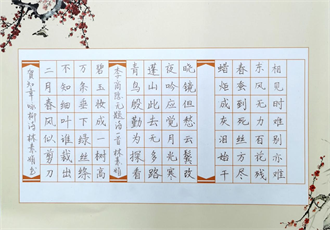 相见时难别亦难
东风无力百花残
春蚕到死丝方尽
蜡炬成灰泪始干
晓镜但愁云鬓改
夜吟应觉月光寒
蓬山此去无多路
青鸟殷勤为探看
李商隐无题诗一首林素
碧玉妆成一树高
万条垂下绿丝绦
不知细叶谁裁出
二月春风似剪刀
贺知章咏柳诗林素